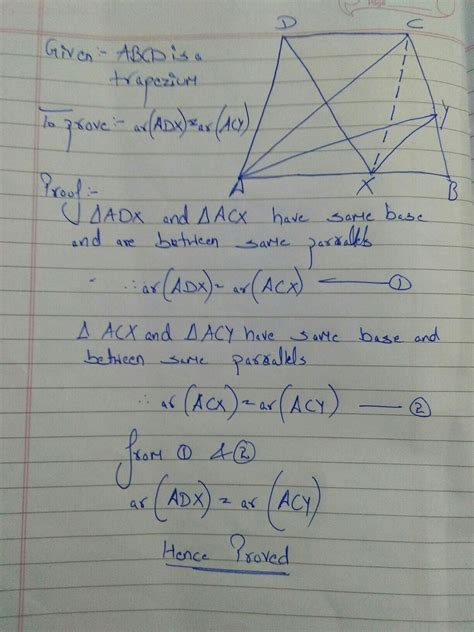 D C
Given:- ABCD is a
trapezium
Y
To prove:- ar(ADX)=ar(ACY)
A X B
Proof:-
ΔADX and ΔACX have same base
and are between same parralels
∴ar(ADX)=ar(ACX) ①
Δ ACX and ΔACY have same base and
between same parralels
∴ar(ACX)=ar(ACY) ②
from ① & ②
ar(ADX) = ar(ACY)
Hence Proved